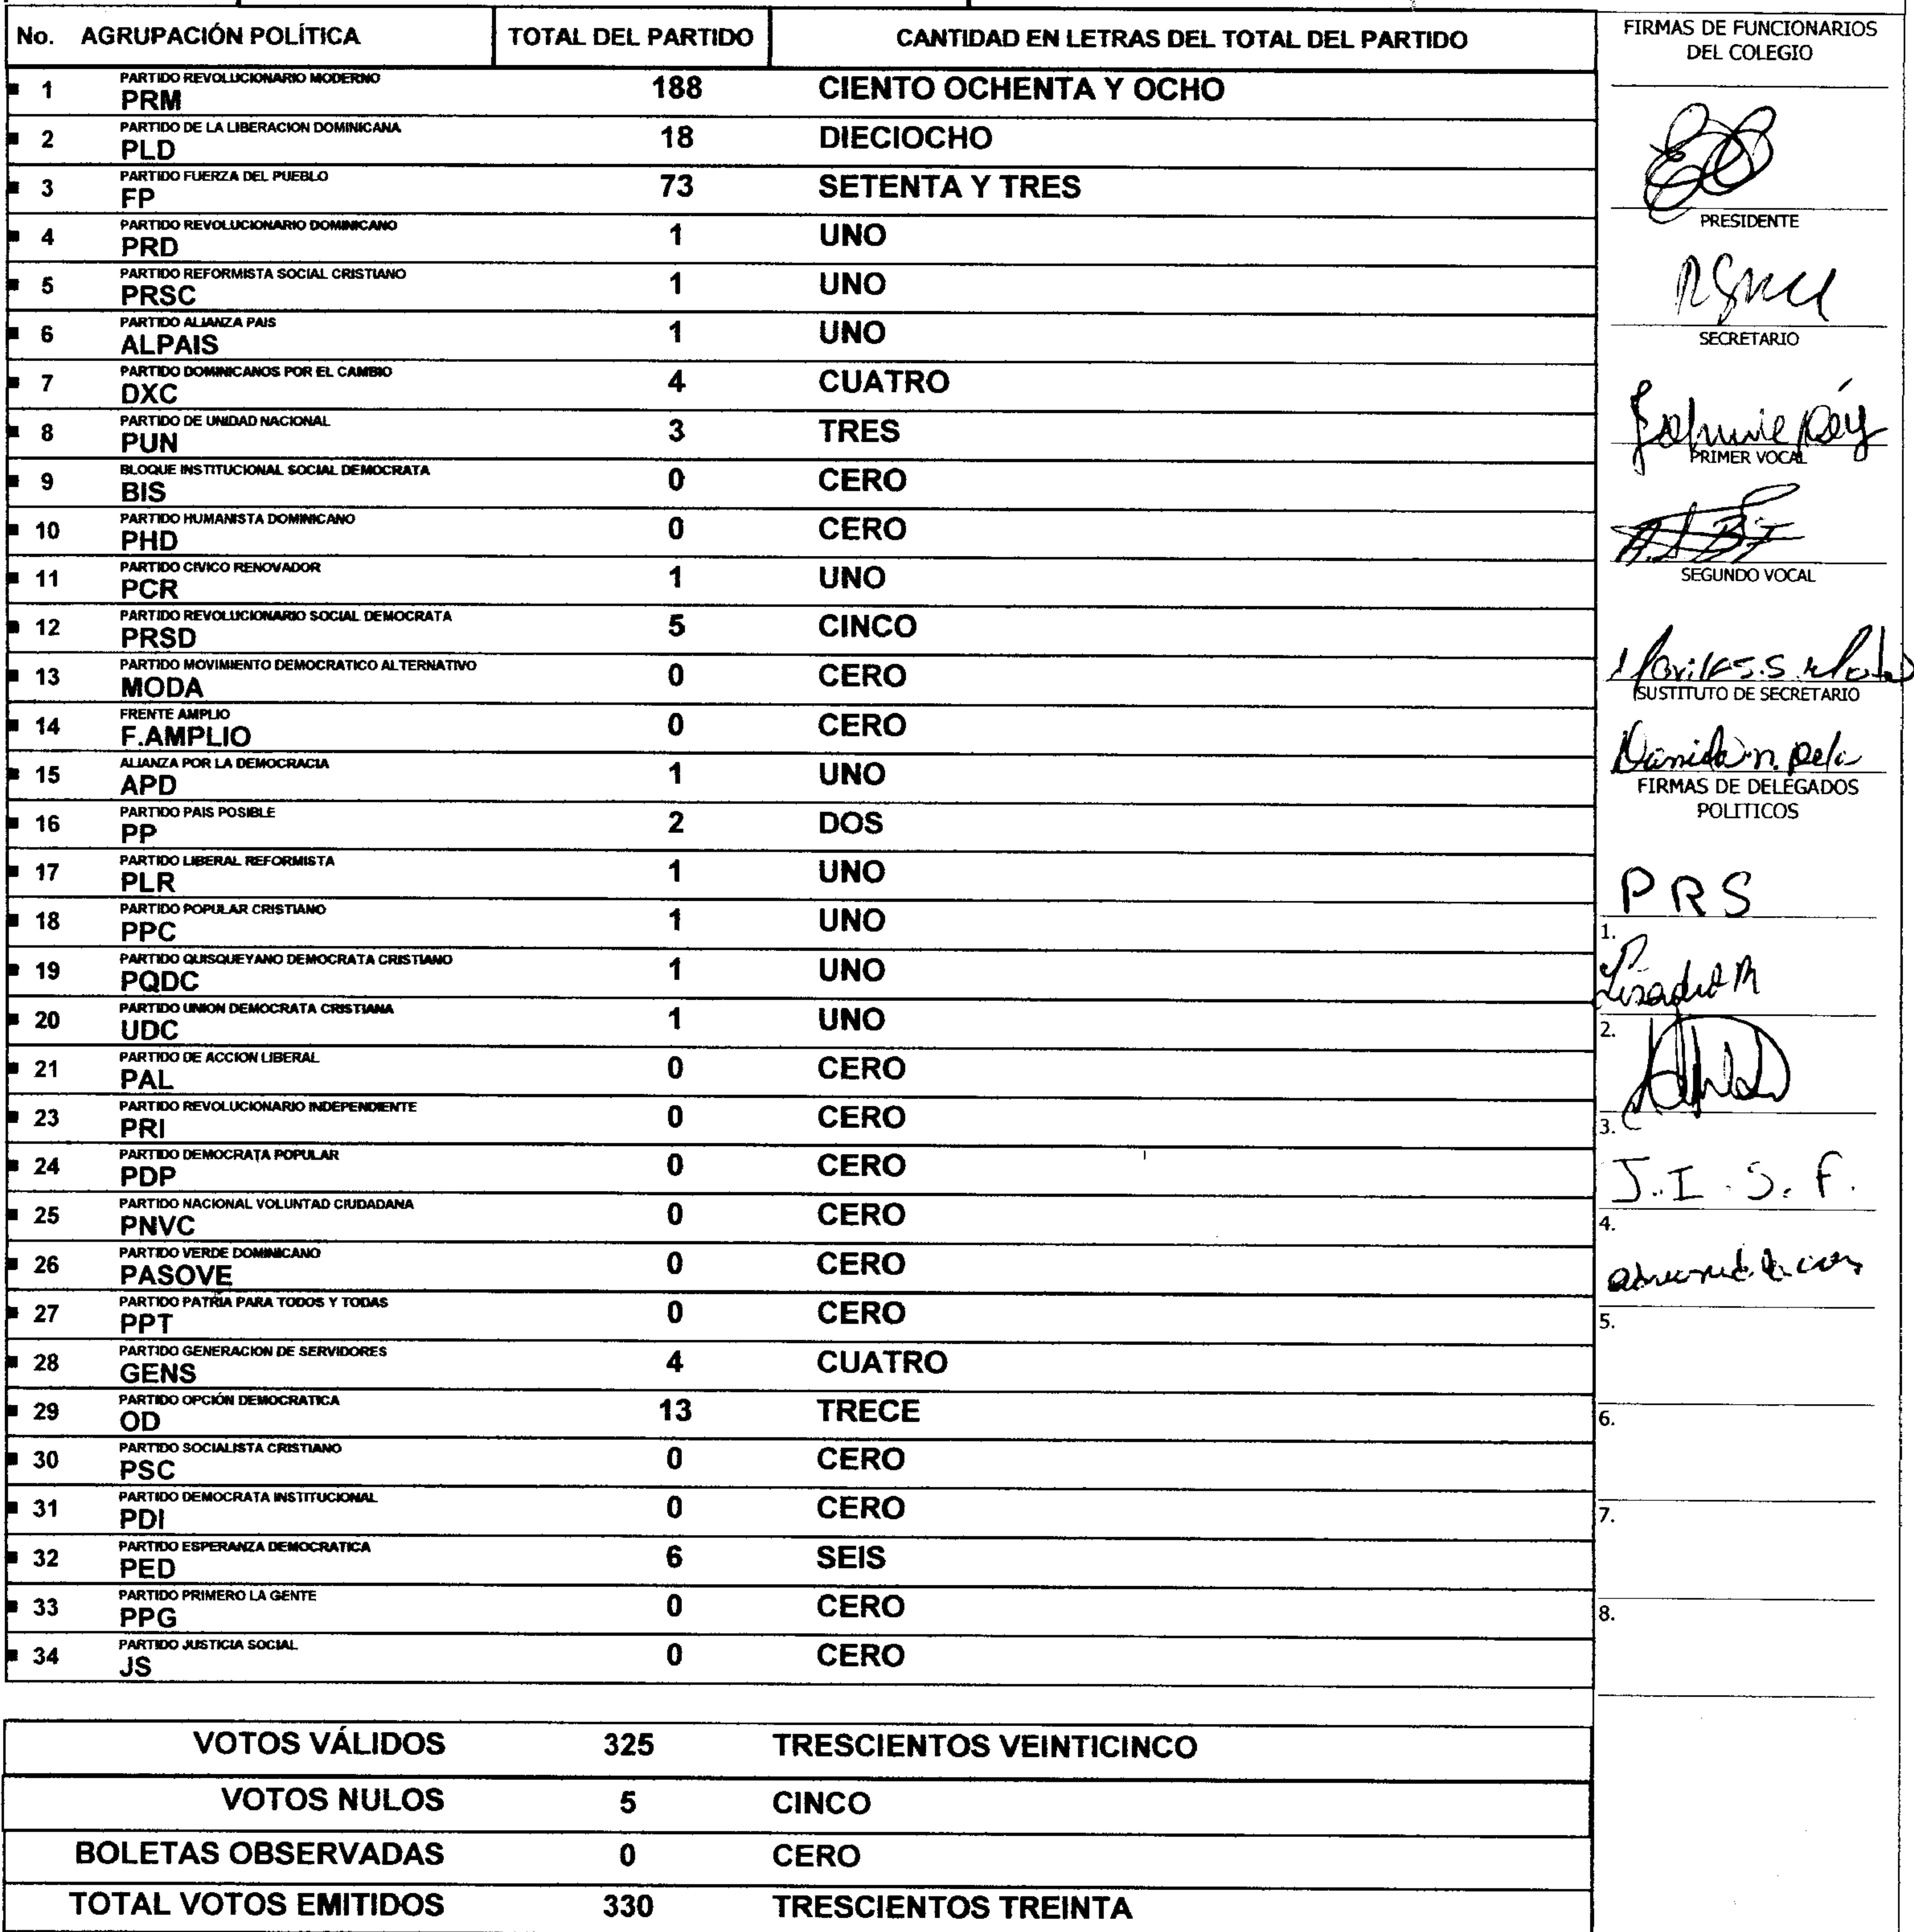 No. AGRUPACIÓN POLÍTICA TOTAL DEL PARTIDO CANTIDAD EN LETRAS DEL TOTAL DEL PARTIDO
PARTIDO REVOLUCIONARIO MODERNO
1 PRM 188 CIENTO OCHENTA Y OCHO
PARTIDO DE LA LIBERACION DOMINICANA
2 PLD 18 DIECIOCHO
PARTIDO FUERZA DEL PUEBLO
3 FP 73 SETENTA Y TRES
PARTIDO REVOLUCIONARIO DOMINICANO
4 PRD 1 UNO
PARTIDO REFORMISTA SOCIAL CRISTIANO
5 PRSC 1 UNO
PARTIDO ALIANZA PAIS
6 ALPAIS 1 UNO
PARTIDO DOMINICANOS POR EL CAMBIO
7 DXC 4 CUATRO
PARTIDO DE UNIDAD NACIONAL
8 PUN 3 TRES
BLOQUE INSTITUCIONAL SOCIAL DEMOCRATA
9 BIS 0 CERO
PARTIDO HUMANISTA DOMINICANO
10 PHD 0 CERO
PARTIDO CIVICO RENOVADOR
11 PCR 1 UNO
PARTIDO REVOLUCIONARIO SOCIAL DEMOCRATA
12 PRSD 5 CINCO
PARTIDO MOVIMIENTO DEMOCRATICO ALTERNATIVO
13 MODA 0 CERO
FRENTE AMPLIO
14 F.AMPLIO 0 CERO
ALIANZA POR LA DEMOCRACIA
15 APD 1 UNO
PARTIDO PAIS POSIBLE
16 PP 2 DOS
PARTIDO LIBERAL REFORMISTA
17 PLR 1 UNO
PARTIDO POPULAR CRISTIANO
18 PPC 1 UNO
PARTIDO QUISQUEYANO DEMOCRATA CRISTIANO
19 PQDC 1 UNO
PARTIDO UNION DEMOCRATA CRISTIANA
20 UDC 1 UNO
PARTIDO DE ACCION LIBERAL
21 PAL 0 CERO
PARTIDO REVOLUCIONARIO INDEPENDIENTE
23 PRI 0 CERO
PARTIDO DEMOCRATA POPULAR
24 PDP 0 CERO
PARTIDO NACIONAL VOLUNTAD CIUDADANA
25 PNVC 0 CERO
PARTIDO VERDE DOMINICANO
26 PASOVE 0 CERO
PARTIDO PATRIA PARA TODOS Y TODAS
27 PPT 0 CERO
PARTIDO GENERACION DE SERVIDORES
28 GENS 4 CUATRO
PARTIDO OPCIÓN DEMOCRATICA
29 OD 13 TRECE
PARTIDO SOCIALISTA CRISTIANO
30 PSC 0 CERO
PARTIDO DEMOCRATA INSTITUCIONAL
31 PDI 0 CERO
PARTIDO ESPERANZA DEMOCRATICA
32 PED 6 SEIS
PARTIDO PRIMERO LA GENTE
33 PPG 0 CERO
PARTIDO JUSTICIA SOCIAL
34 JS 0 CERO
VOTOS VÁLIDOS 325 TRESCIENTOS VEINTICINCO
VOTOS NULOS 5 CINCO
BOLETAS OBSERVADAS 0 CERO
TOTAL VOTOS EMITIDOS 330 TRESCIENTOS TREINTA
FIRMAS DE FUNCIONARIOS
DEL COLEGIO
PRESIDENTE
SECRETARIO
PRIMER VOCAL
SEGUNDO VOCAL
SUSTITUTO DE SECRETARIO
FIRMAS DE DELEGADOS
POLITICOS
PRS
1.
2.
3.
J.I.S.F.
4.
5.
6.
7.
8.